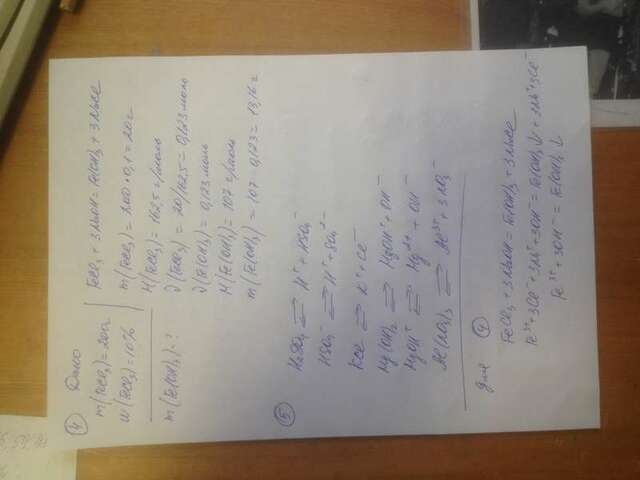 ④ Дано
m(FeCl₃)=200г
ω(FeCl₃)=10%
m(Fe(OH)₃)-?
FeCl₃+3NaOH=Fe(OH)₃+3NaCl
m(FeCl₃)=200·0,1=20г
M(FeCl₃)=162,5 г/моль
ν(FeCl₃)=20/162,5=0,123 моль
ν(Fe(OH)₃)=0,123 моль
M(Fe(OH)₃)=107 г/моль
m(Fe(OH)₃)=107·0,123=13,16 г
⑤ H₂SO₄ ⇄ H⁺+HSO₄⁻
HSO₄⁻ ⇄ H⁺+SO₄²⁻
KCl ⇄ K⁺+Cl⁻
Mg(OH)₂ ⇄ MgOH⁺+OH⁻
MgOH⁺ ⇄ Mg²⁺+OH⁻
Al(NO₃)₃ ⇄ Al³⁺+3NO₃⁻
для ④
FeCl₃+3NaOH=Fe(OH)₃+3NaCl
Fe³⁺+3Cl⁻+3Na⁺+3OH⁻=Fe(OH)₃↓+3Na⁺+3Cl⁻
Fe³⁺+3OH⁻=Fe(OH)₃↓